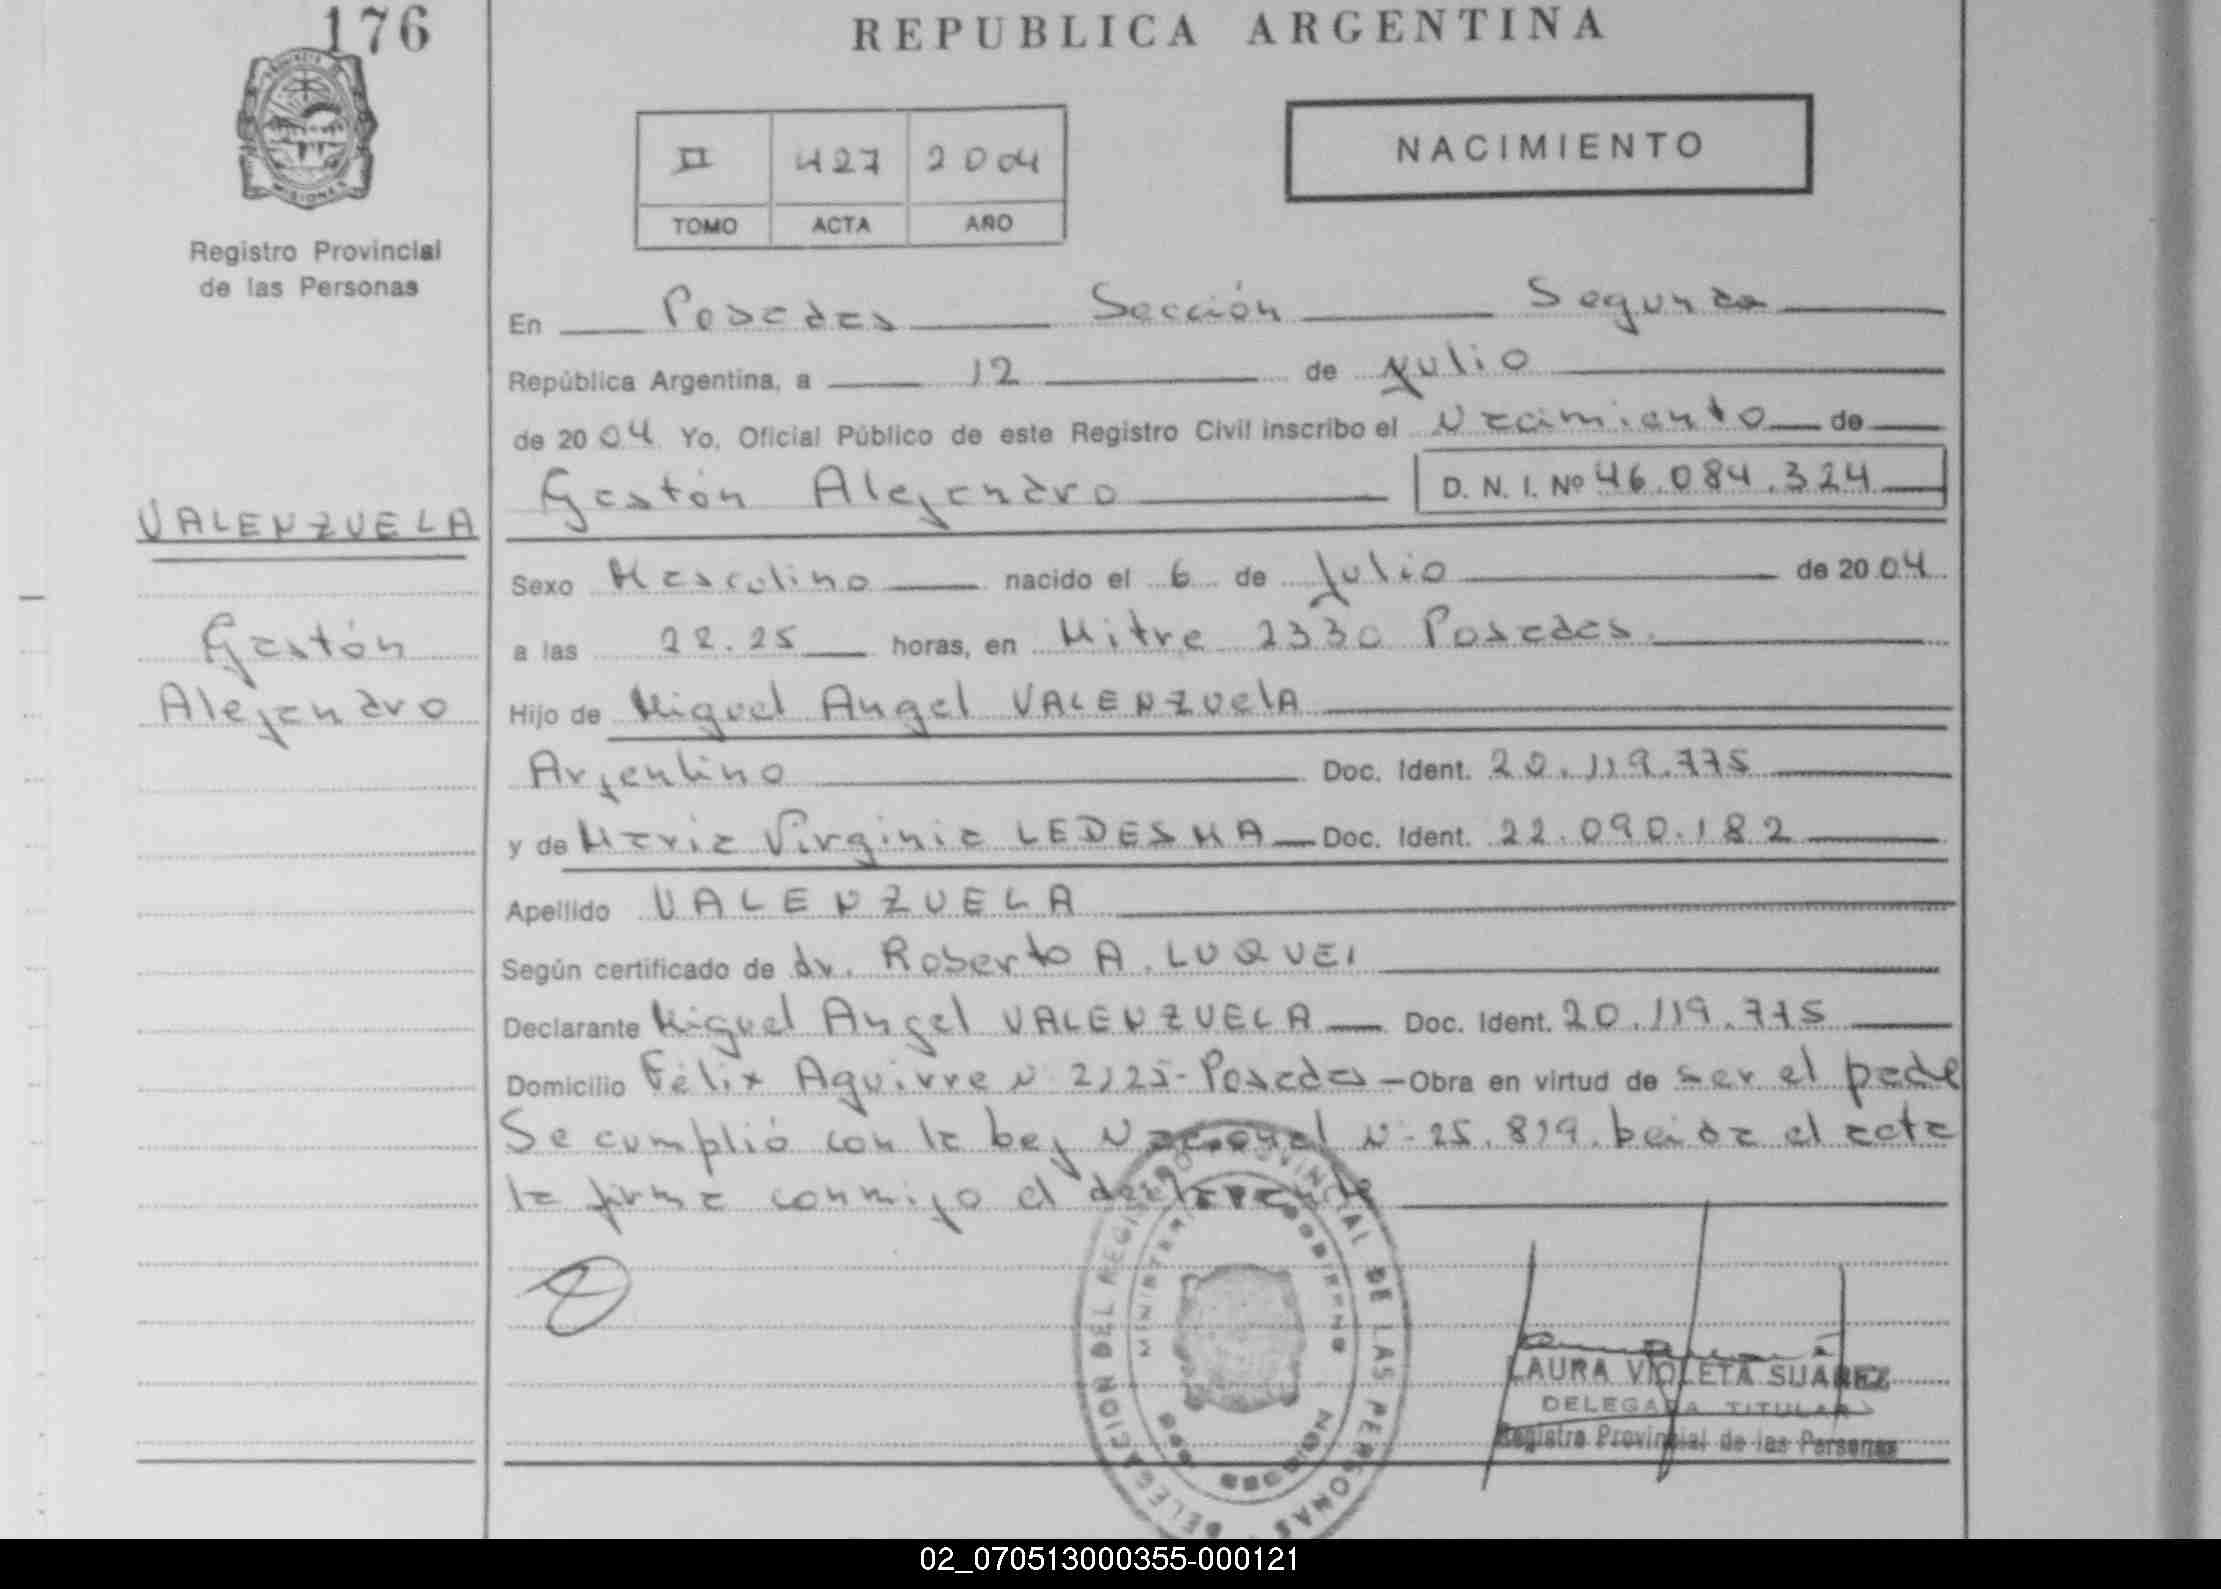 176
REPUBLICA ARGENTINA
PROVINCIA DE
MISIONES
Registro Provincial
de las Personas
II 427 2004
TOMO ACTA AÑO
NACIMIENTO
En Posadas Sección Segunda
República Argentina, a 12 de Julio
de 2004 Yo, Oficial Público de este Registro Civil inscribo el Nacimiento de
Gastón Alejandro D. N. I. Nº 46.084.324
VALENZUELA
Gastón
Alejandro
Sexo Masculino nacido el 6 de Julio de 2004
a las 22.25 horas, en Mitre 2330 Posadas.
Hijo de Miguel Angel VALENZUElA
Argentino Doc. Ident. 20.119.775
y de Maria Virginia LEDESMA Doc. Ident. 22.090.182
Apellido VALENZUELA
Según certificado de dr. Roberto A. LUQUEI
Declarante Miguel Angel VALENZUELA Doc. Ident. 20.119.775
Domicilio Félix Aguirre N 2125- Posadas - Obra en virtud de ser el padre
Se cumplió con la Ley Nacional N- 25.819. Leida el acta
la firma conmigo el declarante
DELEGACION DEL REGISTRO PROVINCIAL DE LAS PERSONAS
MINISTERIO GOBIERNO
MISIONES
LAURA VIOLETA SUAREZ
DELEGADA TITULAR
Registro Provincial de las Personas
02_070513000355-000121